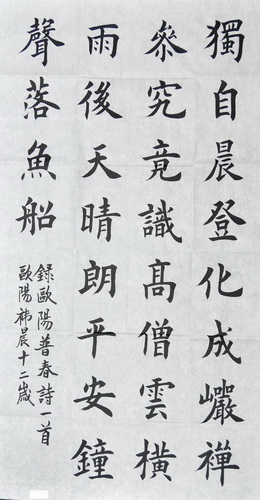 獨自晨登化成巖禪
叅究竟識高僧雲橫
雨後天晴朗平安鐘
聲落魚船
錄歐陽普春詩一首
歐陽祎晨十二歲